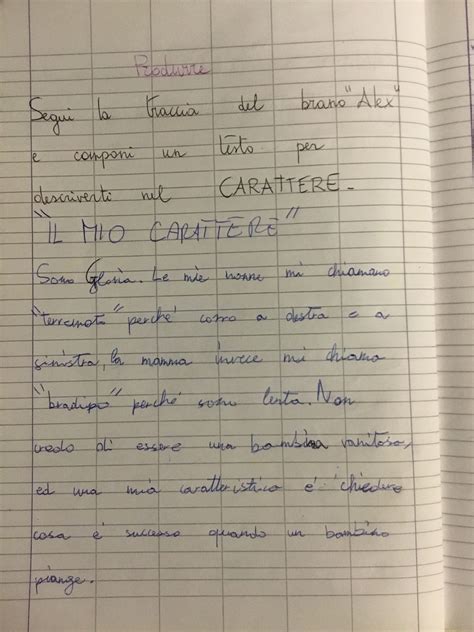 Produrre
Segui la traccia del brano "Alex"
e componi un testo per
descriverti nel CARATTERE.
"IL MIO CARATTERE"
Sono Gloria. Le mie nonne mi chiamano
"terremoto" perché corro a destra e a
sinistra, la mamma invece mi chiama
"bradipo" perché sono lenta. Non
credo di essere una bambina vanitosa,
ed una mia caratteristica é chiedere
cosa é successo quando un bambino
piange.